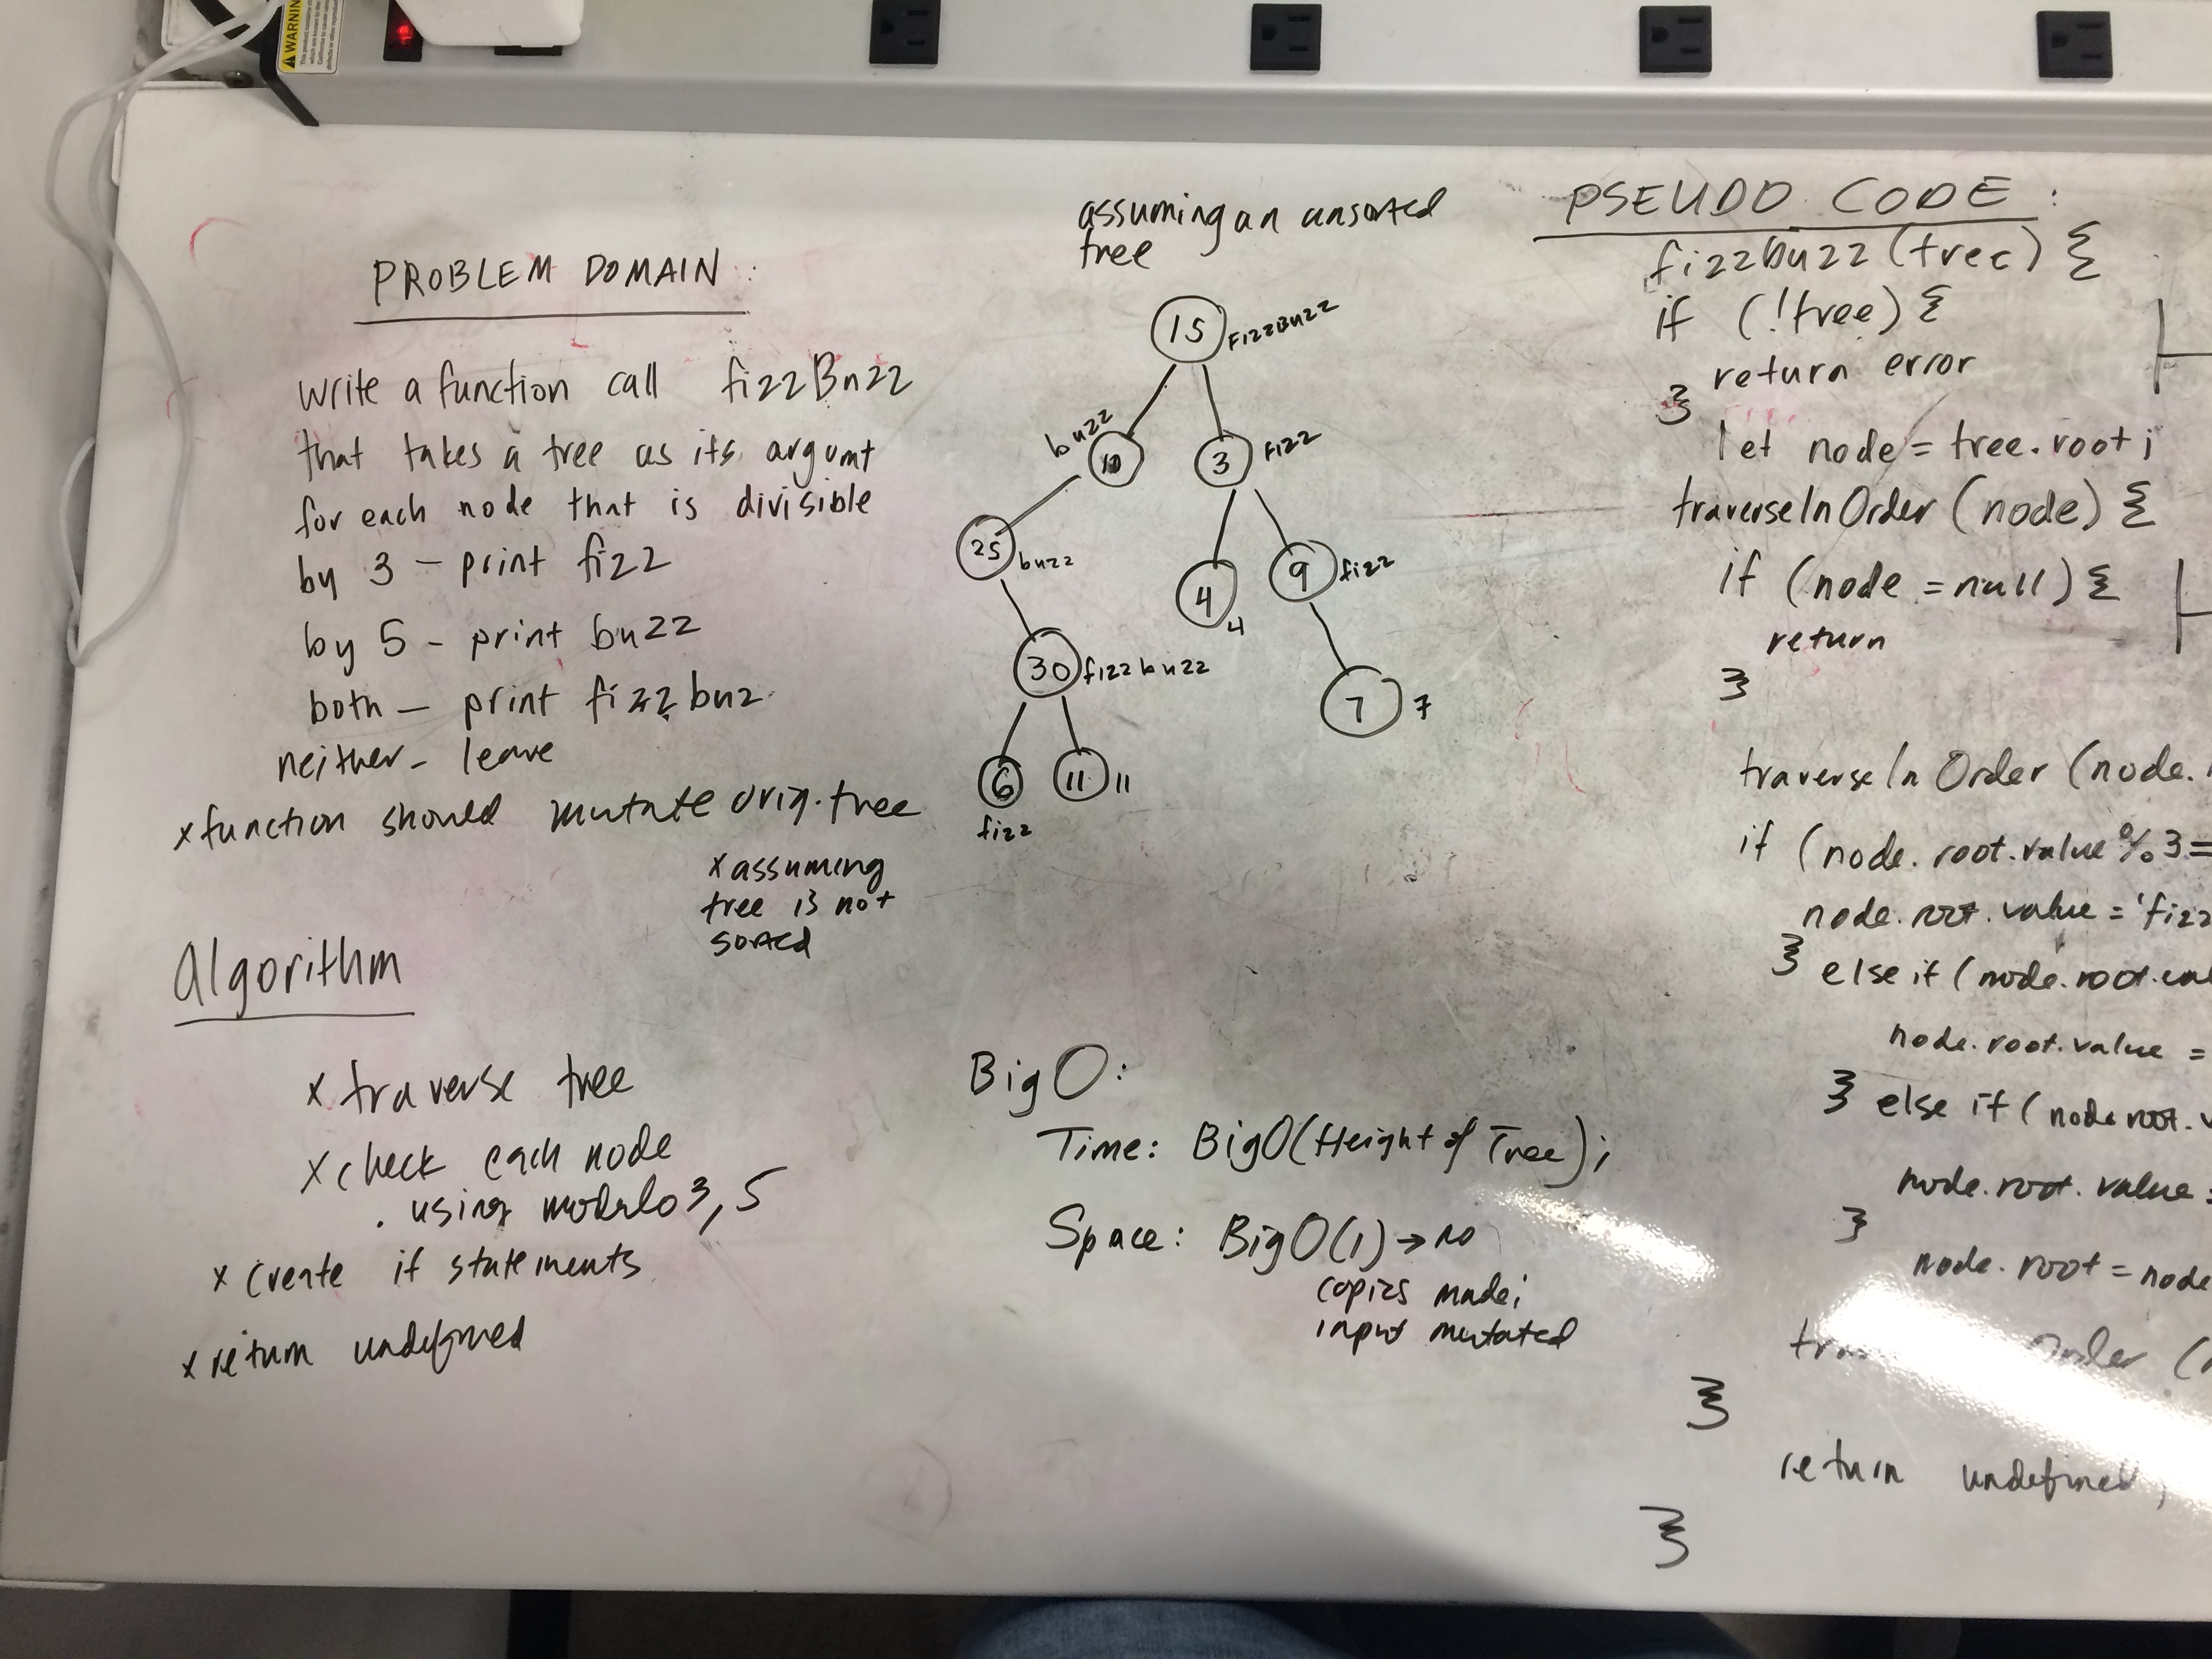 PROBLEM DOMAIN:
Write a function call fizzBuzz
that takes a tree as its argumt
for each node that is divisible
by 3 - print fizz
by 5 - print buzz
both - print fizzbuz
neither - leave
x function should mutate orig. tree
x assuming
tree is not
sorted
algorithm
x traverse tree
x check each node
using modulo 3, 5
x create if statements
x return undefined
assuming an unsorted
tree
15 FizzBuzz
buzz
10
3 fizz
25 buzz
4
4
9 fizz
30 fizzbuzz
7
7
6
fizz
11
11
Big O:
Time: Big O(Height of Tree);
Space: Big O(1) → no
copies made;
input mutated
PSEUDO CODE:
fizzbuzz (tree) {
if (!tree) {
return error
}
let node = tree.root;
traverseInOrder (node) {
if (node = null) {
return
}
traverseInOrder (node.
if (node.root.value % 3 =
node.root.value = 'fizz
} else if (node.root.val
node.root.value =
} else if (node.root.v
node.root.value =
}
node.root = node
}
return undefined
}
WARNING